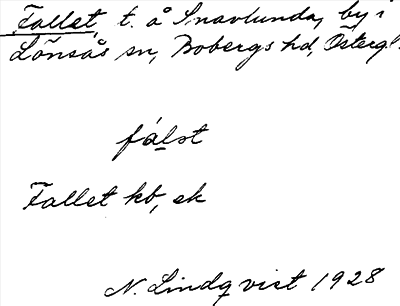 Fallet, t. å Snavlunda, by i
Lönsås sn, Bobergs hd, Östergl.
fálst
Fallet kb, ek
N. Lindqvist 1928